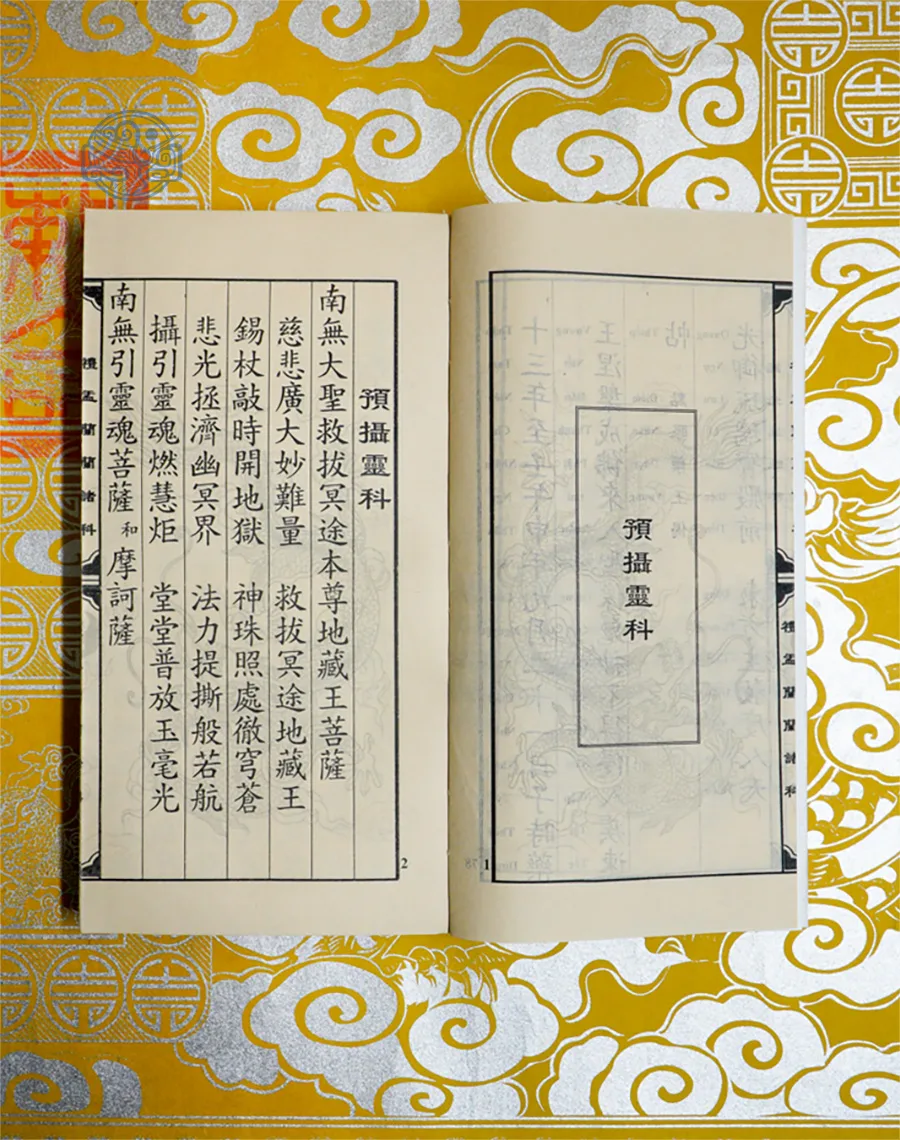 禮盂蘭蘭諸科
預攝靈科
1
預攝靈科
南無大聖救拔冥途本尊地藏王菩薩
慈悲廣大妙難量 救拔冥途地藏王
錫杖敲時開地獄 神珠照處徹穹蒼
悲光拯濟幽冥界 法力提撕般若航
攝引靈魂燃慧炬 堂堂普放玉毫光
南無引靈魂菩薩 和 摩訶薩
禮盂蘭蘭諸科
2